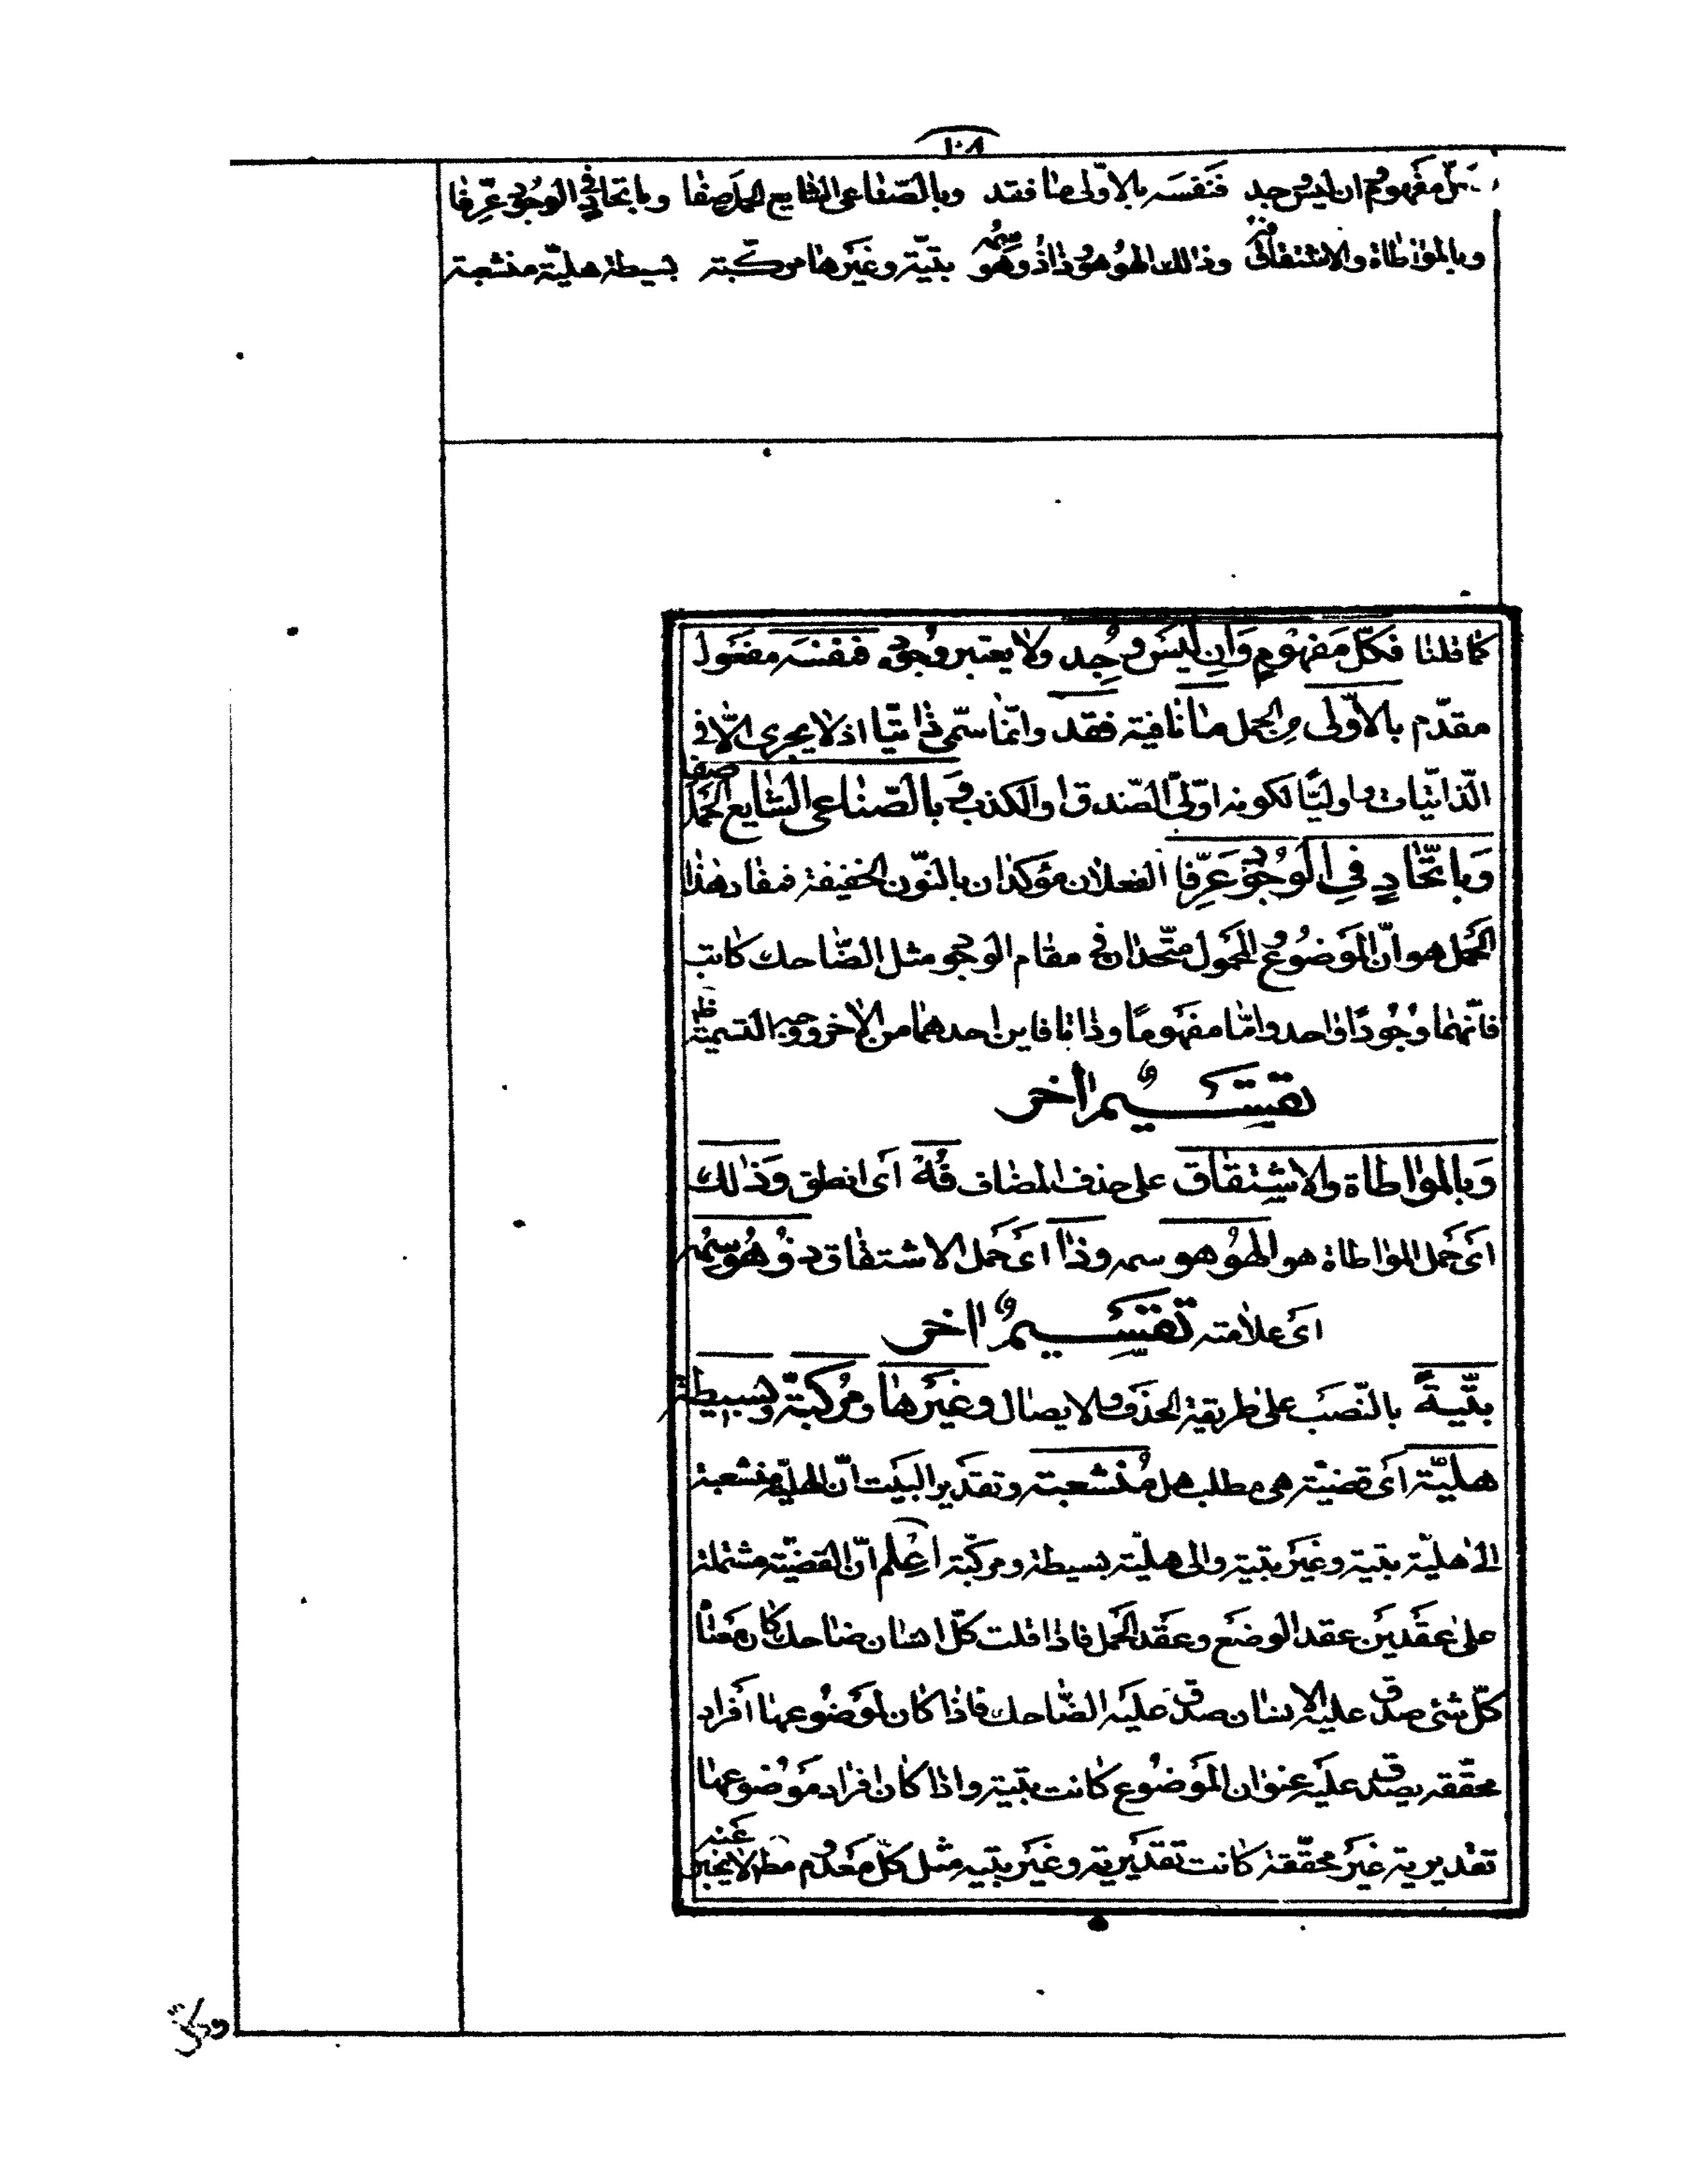 ١٠٨
مفهوم ان ليس وجد فنفسه بالاولى ما فقد وبالصناعى الشايع الحمل صفا وباتحاد فى الوجود عرفا
وبالمواطاة والاشتقاق فه وذالك الهو هو وذا ذو هو سمه بتية وغيرها مركبته بسيطة هلية منشعبة
كما قلنا فكلّ مَفهومٍ وَان ليسَ وُجِد ولا يعتبر وجوده فنفسَه مفعول
مقدّم بالاولى من الحمل ما نافية فقد وانّما سمّى ذاتيّا اذ لا يجرى الّا فى
الذّاتيّات واوليّا لكونه اوّلىّ الصّدق او الكذب وَبالصّناعى الشايع الحمل صفا
وَباتّحادٍ فى الوجود عَرّفا الفعلان مؤكدان بالنّون الخفيفة فمفاد هذا
الحَمل هو انّ المَوضوع والمحمول متّحدان فى مقام الوجود مثل الضّاحك كاتب
فانّهما وُجُودًا واحد وامّا مفهومًا وذاتا فاين احدهما من الاخر ووجه التسمية ظ
تقسيم اخر
وَبالمواطاة والاشتقاق على حذف المضاف فُهْ اى انطق وَذالك
اى حَمل المواطاة هو الهُو هو سمه وذا اى حَمل الاشتقاق ذو هُو سِمُه
اى علامته تقسيم اخر
بتّيةً بالنّصب على طريقة الحذف والايصال وغيرها ومُركبة وبسيطة
هليّة اى قضيّة هى مطلب هل مُنشعبة وتقدير البيت انّ الهليّة منشعبة
الى هليّة بتية وغير بتية والى هليّة بسيطة ومركّبة اعلم انّ القضيّة مشتملة
على عقدين عقد الوضع وعقد الحمل فاذا قلت كلّ انسان ضاحك كان معناه
كلّ شئ صدق عليه الانسان صدق عليه الضّاحك فاذا كان لموضوعها افراد
محققه يصدق عليه عنوان المَوضوع كانت بتّية واذا كان افراد موضوعها
تقديرية غير محقّقة كانت تقديرية وغير بتيه مثل كلّ معدوم مطلق لا يخبر عنه
وكل